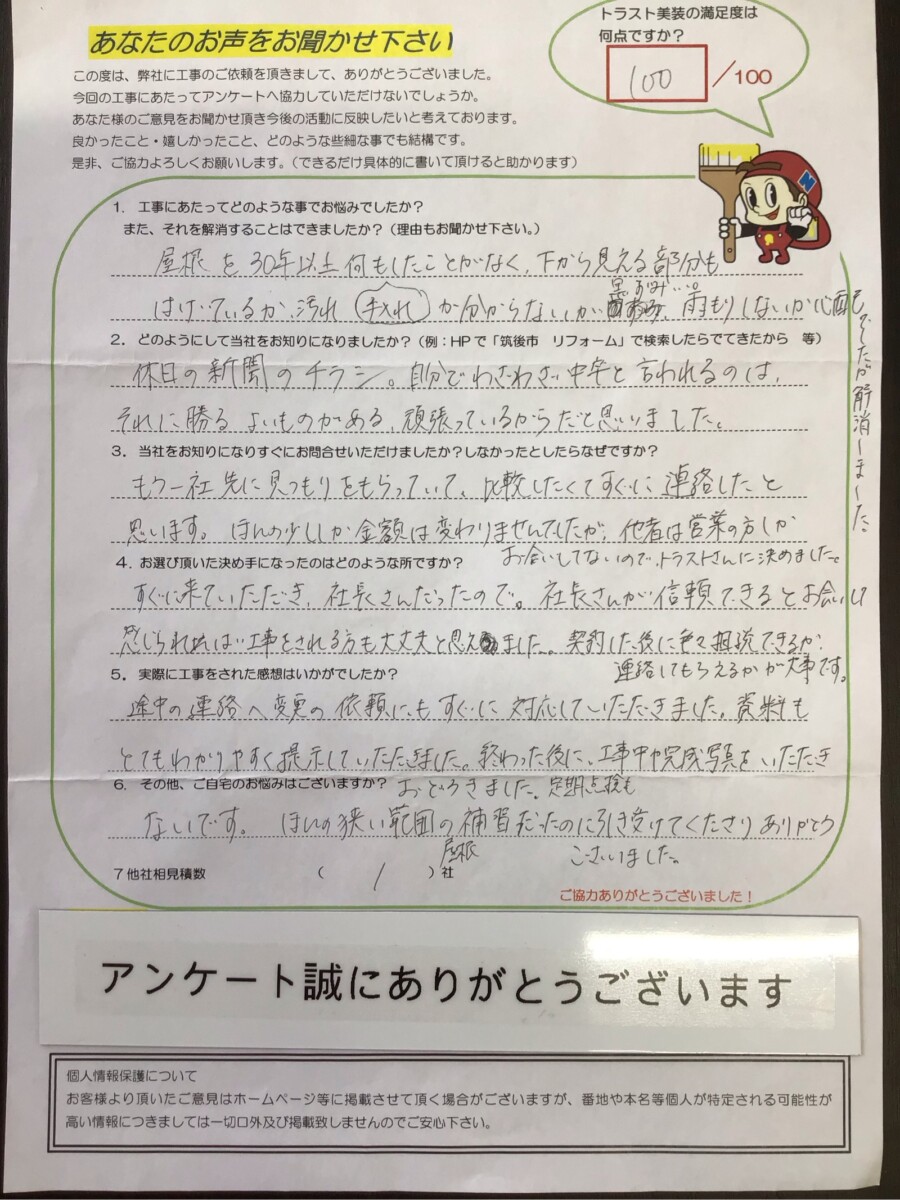 あなたのお声をお聞かせ下さい
トラスト美装の満足度は
何点ですか?
100 /100
この度は、弊社に工事のご依頼を頂きまして、ありがとうございました。
今回の工事にあたってアンケートへ協力していただけないでしょうか。
あなた様のご意見をお聞かせ頂き今後の活動に反映したいと考えております。
良かったこと・嬉しかったこと、どのような些細な事でも結構です。
是非、ご協力よろしくお願いします。(できるだけ具体的に書いて頂けると助かります)
1. 工事にあたってどのような事でお悩みでしたか?
また、それを解消することはできましたか?(理由もお聞かせ下さい。)
屋根を30年以上何もしたことがなく、下から見える部分も
はげているか、汚れ 手入れ か分からないしが 黒ずみ…。雨もりしないか心配も
でしたが解消しました。
2. どのようにして当社をお知りになりましたか?(例:HPで「筑後市 リフォーム」で検索したらでてきたから 等)
休日の新聞のチラシ。自分でわざわざ中卒と言われるのは、
それに勝るよいものがある、頑張っているからだと思いました。
3. 当社をお知りになりすぐにお問合せいただけましたか?しなかったとしたらなぜですか?
もう一社先に見つもりをもらっていて、比較したくてすぐに連絡したと
思います。ほんの少ししか金額は変わりませんでしたが、他者は営業の方しか
お会いしてないので、トラストさんに決めました。
4. お選び頂いた決め手になったのはどのような所ですか?
すぐに来ていただき、社長さんだったので。社長さんが信頼できるとお会いして
感じられれば工事をされる方も大丈夫と思えました。契約した後に色々相談できるか、
連絡してもらえるかが大事です。
5. 実際に工事をされた感想はいかがでしたか?
途中の連絡へ変更の依頼にもすぐに対応していただきました。資料も
とてもわかりやすく提示していただきました。終わった後に、工事中や完成写真をいただき
おどろきました。定期点検も
6. その他、ご自宅のお悩みはございますか?
ないです。ほんの狭い範囲の補習だったのに引き受けてくださりありがとう
屋根
ございました。
7 他社相見積数 ( 1 )社
ご協力ありがとうございました!
アンケート誠にありがとうございます
個人情報保護について
お客様より頂いたご意見はホームページ等に掲載させて頂く場合がございますが、番地や本名等個人が特定される可能性が
高い情報につきましては一切口外及び掲載致しませんのでご安心下さい。